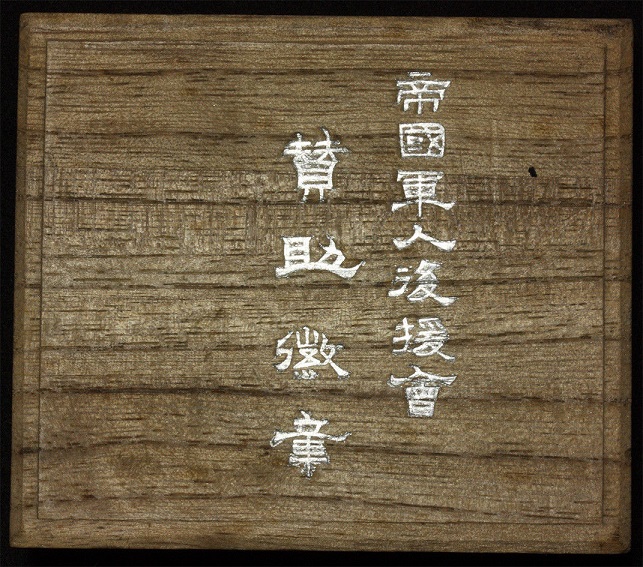 帝國軍人後援會
賛助徽章